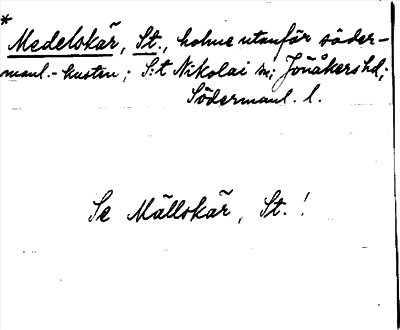 *
Medelskär, St., holme utanför söder-
manl.-kusten; S:t Nikolai sn; Jönåkers hd;
Södermanl. l.
Se Mällskär, St.!